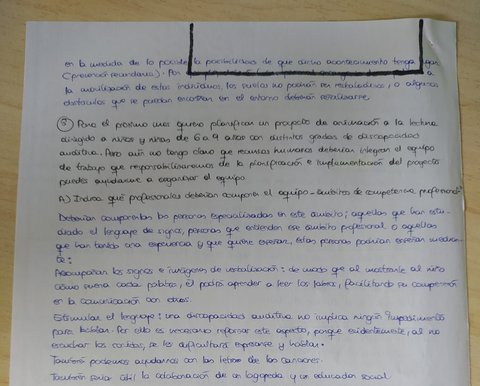 en la medida de lo posible la posibilidades de que dicho acontecimiento tenga lugar
(prevención secundaria). Por a
la movilización de estos individuos, los suelos no podrán en
obstáculos que se puedan encontrar en el entorno deberán señalizarse.
5) Para el próximo mes quiero planificar un proyecto de animación a la lectura
dirigido a niños y niñas de 6 a 9 años con distintos grados de discapacidad
auditiva. Pero aún no tengo claro que recursos humanos deberían integrar el equipo
de trabajo que responsabilizaremos de la planificación e implementación del proyecto
puedes ayudarme a organizar el equipo.
A) Indica qué profesionales deberían componer el equipo - ámbitos de competencia profesional
Deberían componerlas las personas especializadas en este ámbito; aquellas que han estu-
diado el lenguaje de signos, personas que entienden ese ámbito profesional o aquellas
que han tenido una experiencia y que quiere enseñar, estas personas podrían enseñar median-
te:
Acompañar los signos e imágenes de vocalización: de modo que al mostrarle al niño
cómo suena cada palabra, el podrá aprender a leer los labios, facilitando su comprensión
en la comunicación con otros.
Estimular el lenguaje: una discapacidad auditiva no implica ningún impedimento
para hablar. Por ello es necesario reforzar este aspecto, porque evidentemente, al no
escuchar los sonidos, se les dificultará expresarse y hablar.
También podemos ayudarnos con las letras de las canciones.
También sería útil la colaboración de un logopeda y un educador social.